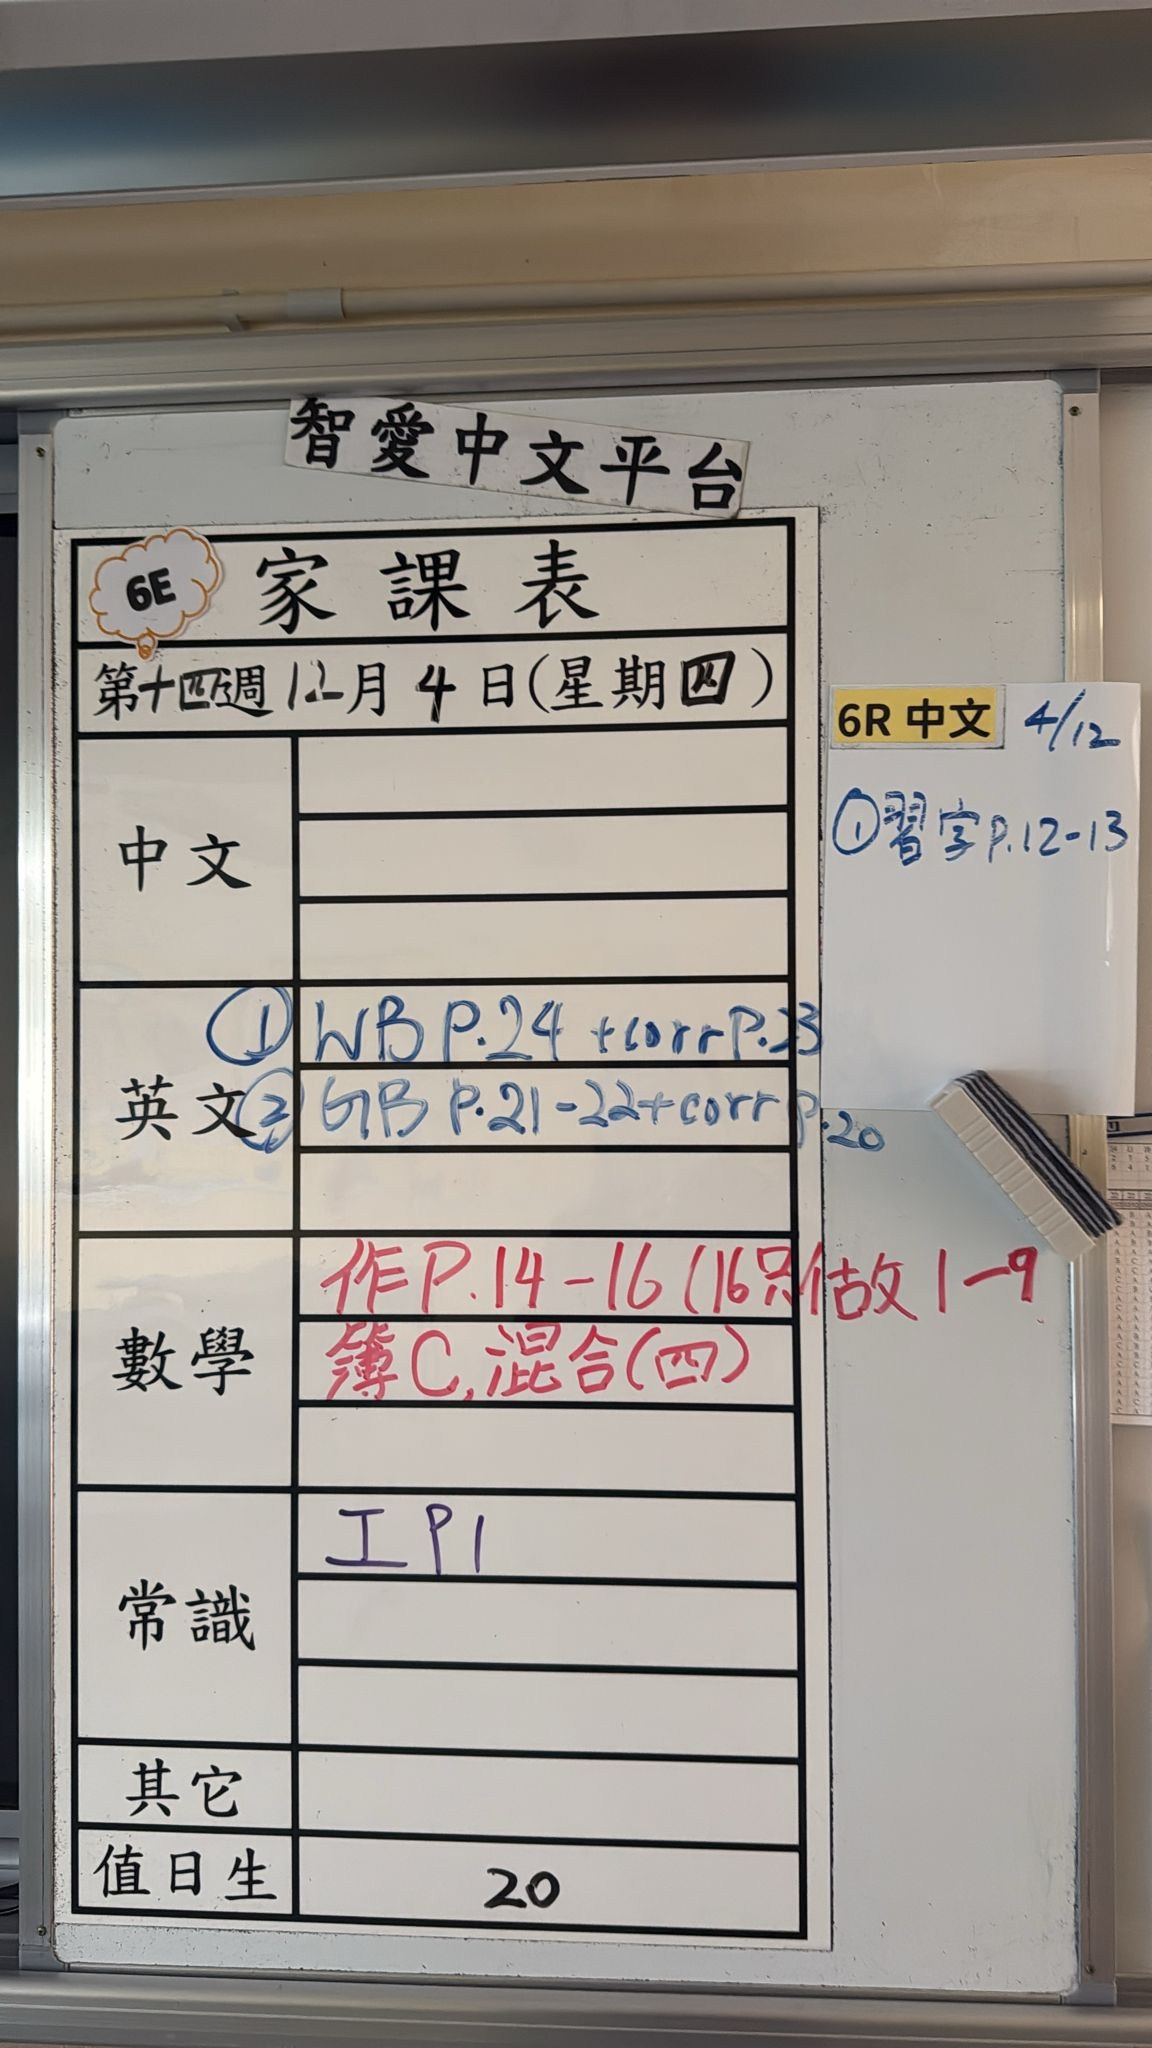 智愛中文平台
6E 家課表
第十四週12月4日(星期四)
6R 中文 4/12
①習字P.12-13
中文
英文
①WB P.24 +corr P.23
②GB P.21-22+corr P.20
數學
作P.14-16 (16只做1-9
簿C,混合(四)
常識
工P1
其它
值日生 20